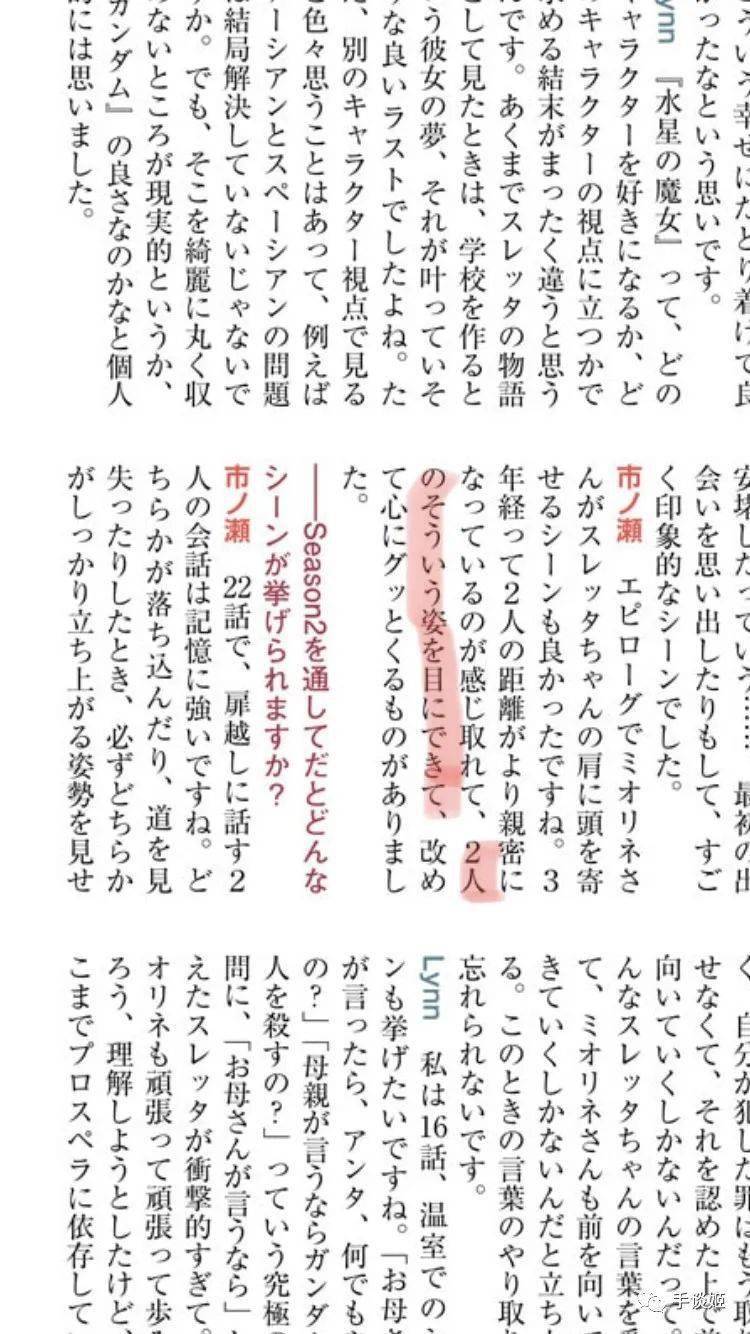 かったなという思いです。
Lynn 『水星の魔女』って、どの
キャラクターを好きになるか、ど
のキャラクターの視点に立つかで
求める結末がまったく違うと思う
んです。あくまでスレッタの物語
として見たときは、学校を作ると
いう彼女の夢、それが叶っていそ
うな良いラストでしたよね。た
だ、別のキャラクター視点で見る
と色々思うことはあって、例えば
アーシアンとスペーシアンの問題
は結局解決していないじゃないで
すか。でも、そこを綺麗に丸く収
めないところが現実的というか、
『ガンダム』の良さなのかなと個人
的には思いました。
会いを思い出したりもして、すご
く印象的なシーンでした。
市ノ瀬 エピローグでミオリネさ
んがスレッタちゃんの肩に頭を寄
せるシーンも良かったですね。3
年経って2人の距離がより親密に
なっているのが感じ取れて、2人
のそういう姿を目にできて、改め
て心にグッとくるものがありまし
た。
──Season2を通してだとどんな
シーンが挙げられますか?
市ノ瀬 22話で、扉越しに話す2
人の会話は記憶に強いですね。ど
ちらかが落ち込んだり、道を見
失ったりしたとき、必ずどちらか
がしっかり立ち上がる姿勢を見せ
く、自分が犯した罪はもう取
せなくて、それを認めた上で
向いていくしかないんだって。
んなスレッタちゃんの言葉を
て、ミオリネさんも前を向いて
きていくしかないんだと立ち
る。このときの言葉のやり取
忘れられないです。
Lynn 私は16話、温室での
ンも挙げたいですね。「お母
が言ったら、アンタ、何でも
の?」「母親が言うならガンダ
人を殺すの?」っていう究極の
問に、「お母さんが言うなら」
えたスレッタが衝撃的すぎて。
オリネも頑張って頑張って歩
ろう、理解しようとしたけど、
こまでプロスペラに依存して
手谈姬